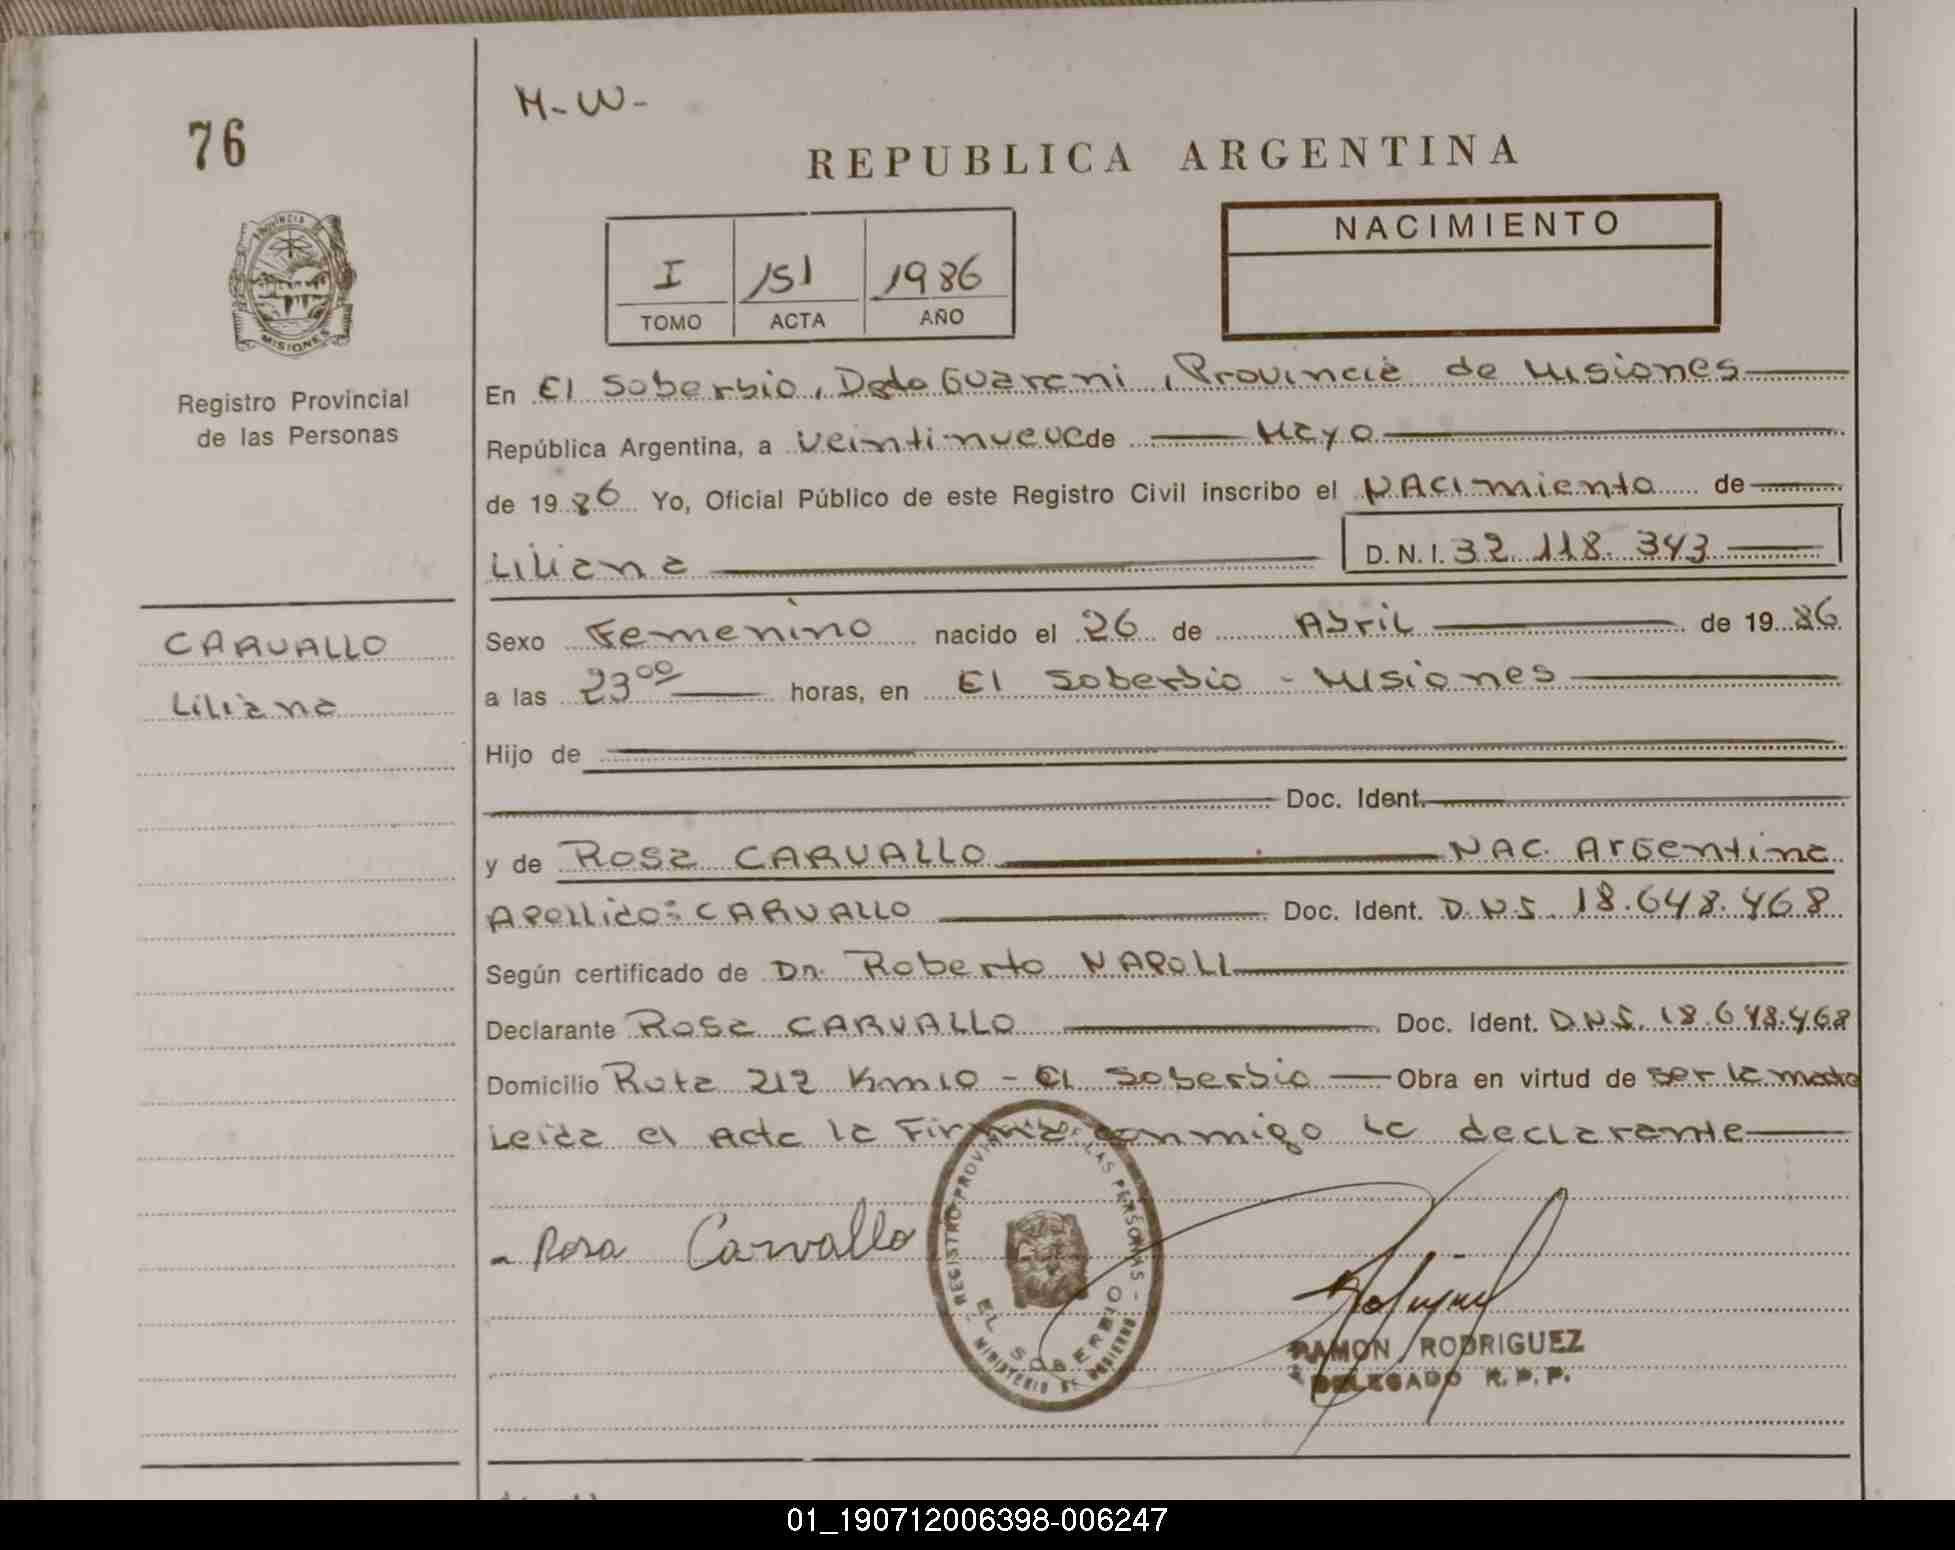 76
M-W-
REPUBLICA ARGENTINA
PROVINCIA
MISIONES
Registro Provincial
de las Personas
I 151 1986
TOMO ACTA AÑO
NACIMIENTO
En El Soberbio, Dpto Guarani, Provincia de Misiones
República Argentina, a veintinueve de Mayo
de 1986 Yo, Oficial Público de este Registro Civil inscribo el NACimiento de
Liliana D.N.I. 32.118.343
CARVALLO
Liliana
Sexo Femenino nacido el 26 de Abril de 1986
a las 23 00 horas, en El Soberbio - Misiones
Hijo de
Doc. Ident.
y de Rosa CARVALLO NAC. Argentina
Apellido: CARVALLO Doc. Ident. D.N.I. 18.648.468
Según certificado de Dr. Roberto NAPOLI
Declarante Rosa CARVALLO Doc. Ident. D.N.I. 18.648.468
Domicilio Ruta 212 Km 10 - El Soberbio Obra en virtud de ser la madre
Leida el Acta la Firma conmigo la declarante
- Rosa Carvallo
REGISTRO PROVI LAS PERSONAS -
EL SOBERBIO
MINISTERIO DE GOBIERNO
RAMON RODRIGUEZ
DELEGADO R.P.P.
01_190712006398-006247